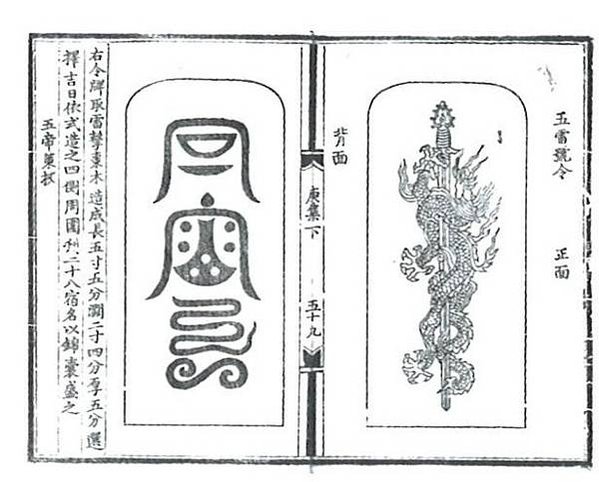 五雷號令
正面
背面
庚集下
五十九
右令牌取雷擊棗木造成長五寸五分濶二寸四分厚五分選
擇吉日依式造之四側周圍刋二十八宿名以錦囊盛之
五帝東抝